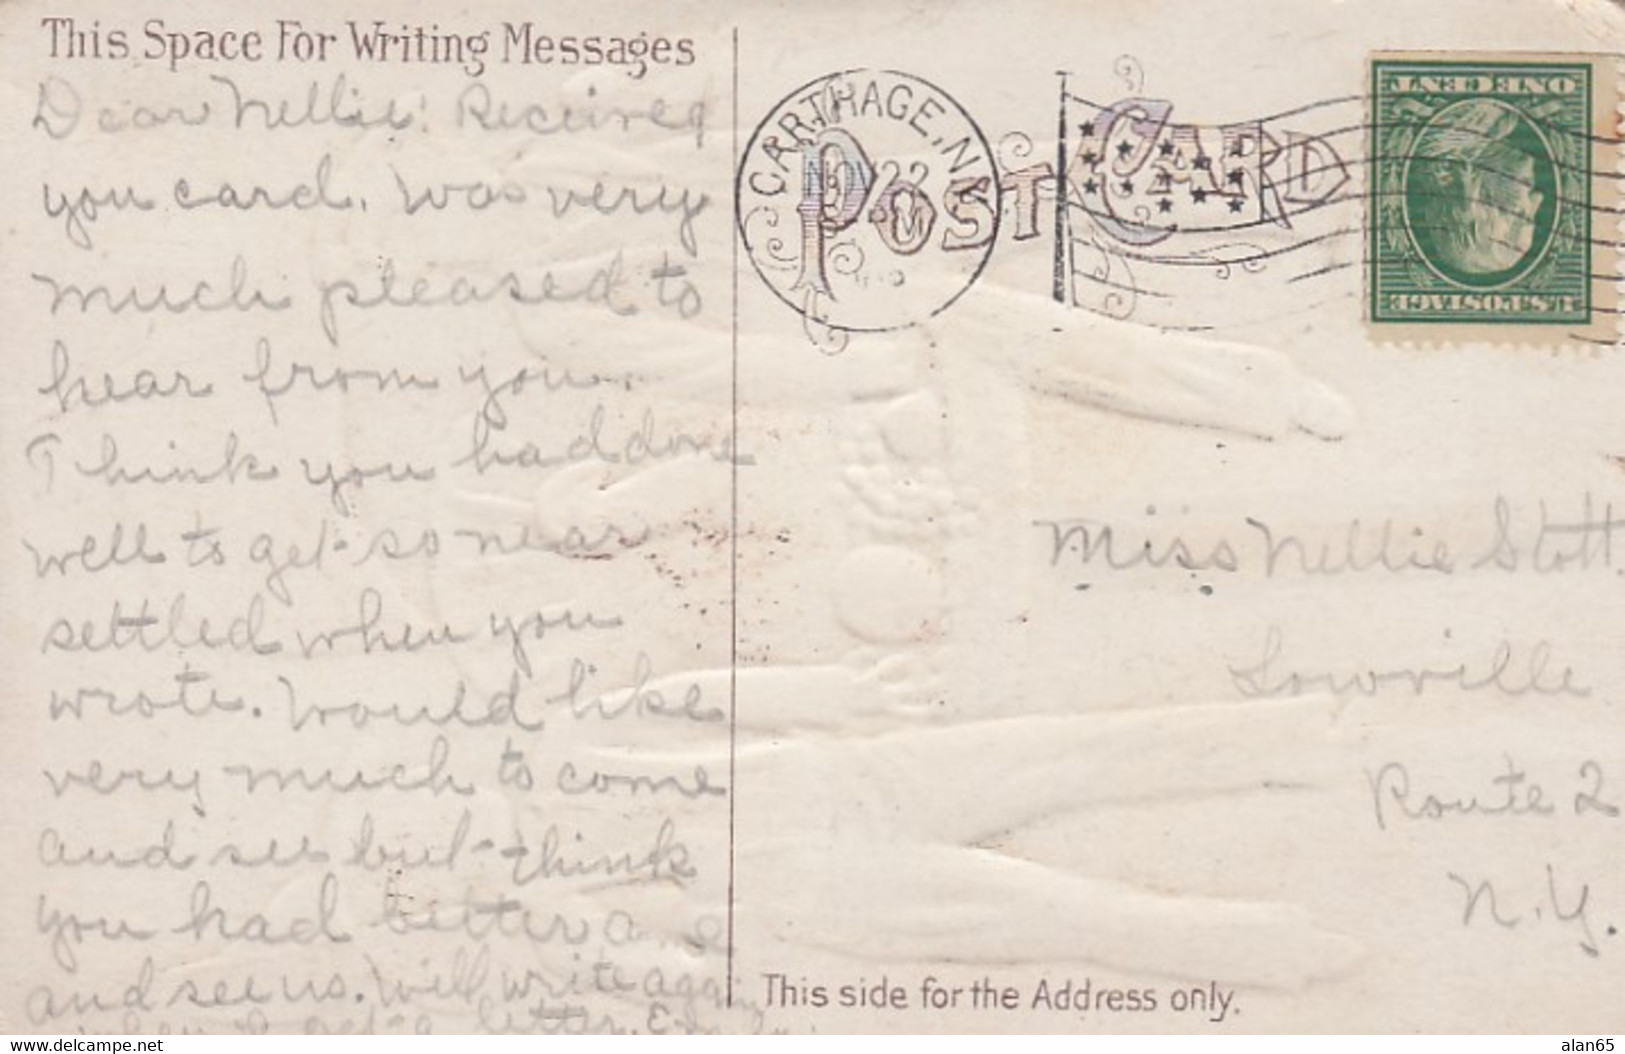 This Space For Writing Messages
Dear Nellie: Received
you card. Was very
much pleased to
hear from you.
Think you had done
well to get so near
settled when you
wrote. Would like
very much to come
and see but think
you had better
and see us. Will write again
letter.
CARTHAGE, N.Y.
NOV 22
POST CARD
ONE CENT
U.S. POSTAGE
Miss Nellie Stott.
Lowville
Route 2
N.Y.
This side for the Address only.
www.delcampe.net
alan65